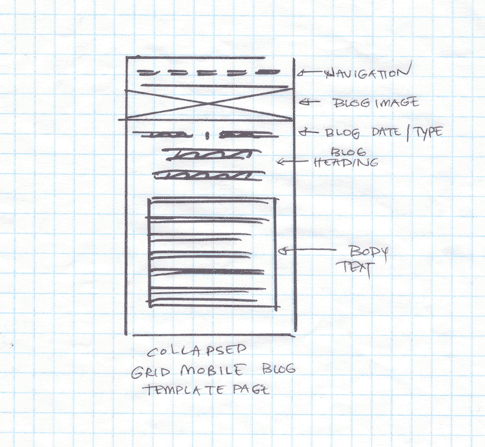 NAVIGATION
BLOG IMAGE
BLOG DATE/TYPE
BLOG
HEADING
BODY
TEXT
COLLAPSED
GRID MOBILE BLOG
TEMPLATE PAGE